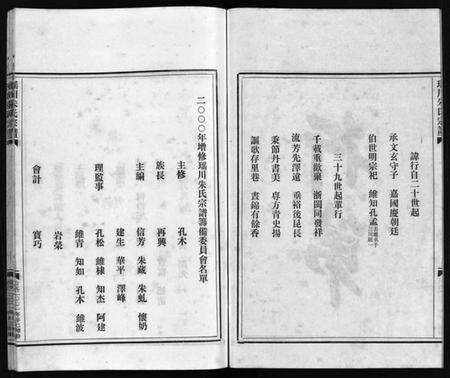 瑞川朱氏宗譜
諱行自二十世起
承文玄守子 嘉國慶朝廷
伯世明宗祀 維知孔孟
三十九世起單行
千載重敵廉 浙閩同發祥
流芳先澤遠 垂裕後昆長
秉節丹書美 專方青史揚
謳歌存里巷 晝錦有餘香
二〇〇〇年增修瑞川朱氏宗譜籌備委員會名單
主修 孔木
族長 再興
主編 信芳 朱藏 朱虬 懷奶
建生 華平 澤峰
理監事 孔松 維棣 知杰 阿建
維青 知如 孔木 維波
岩榮
會計 寳巧